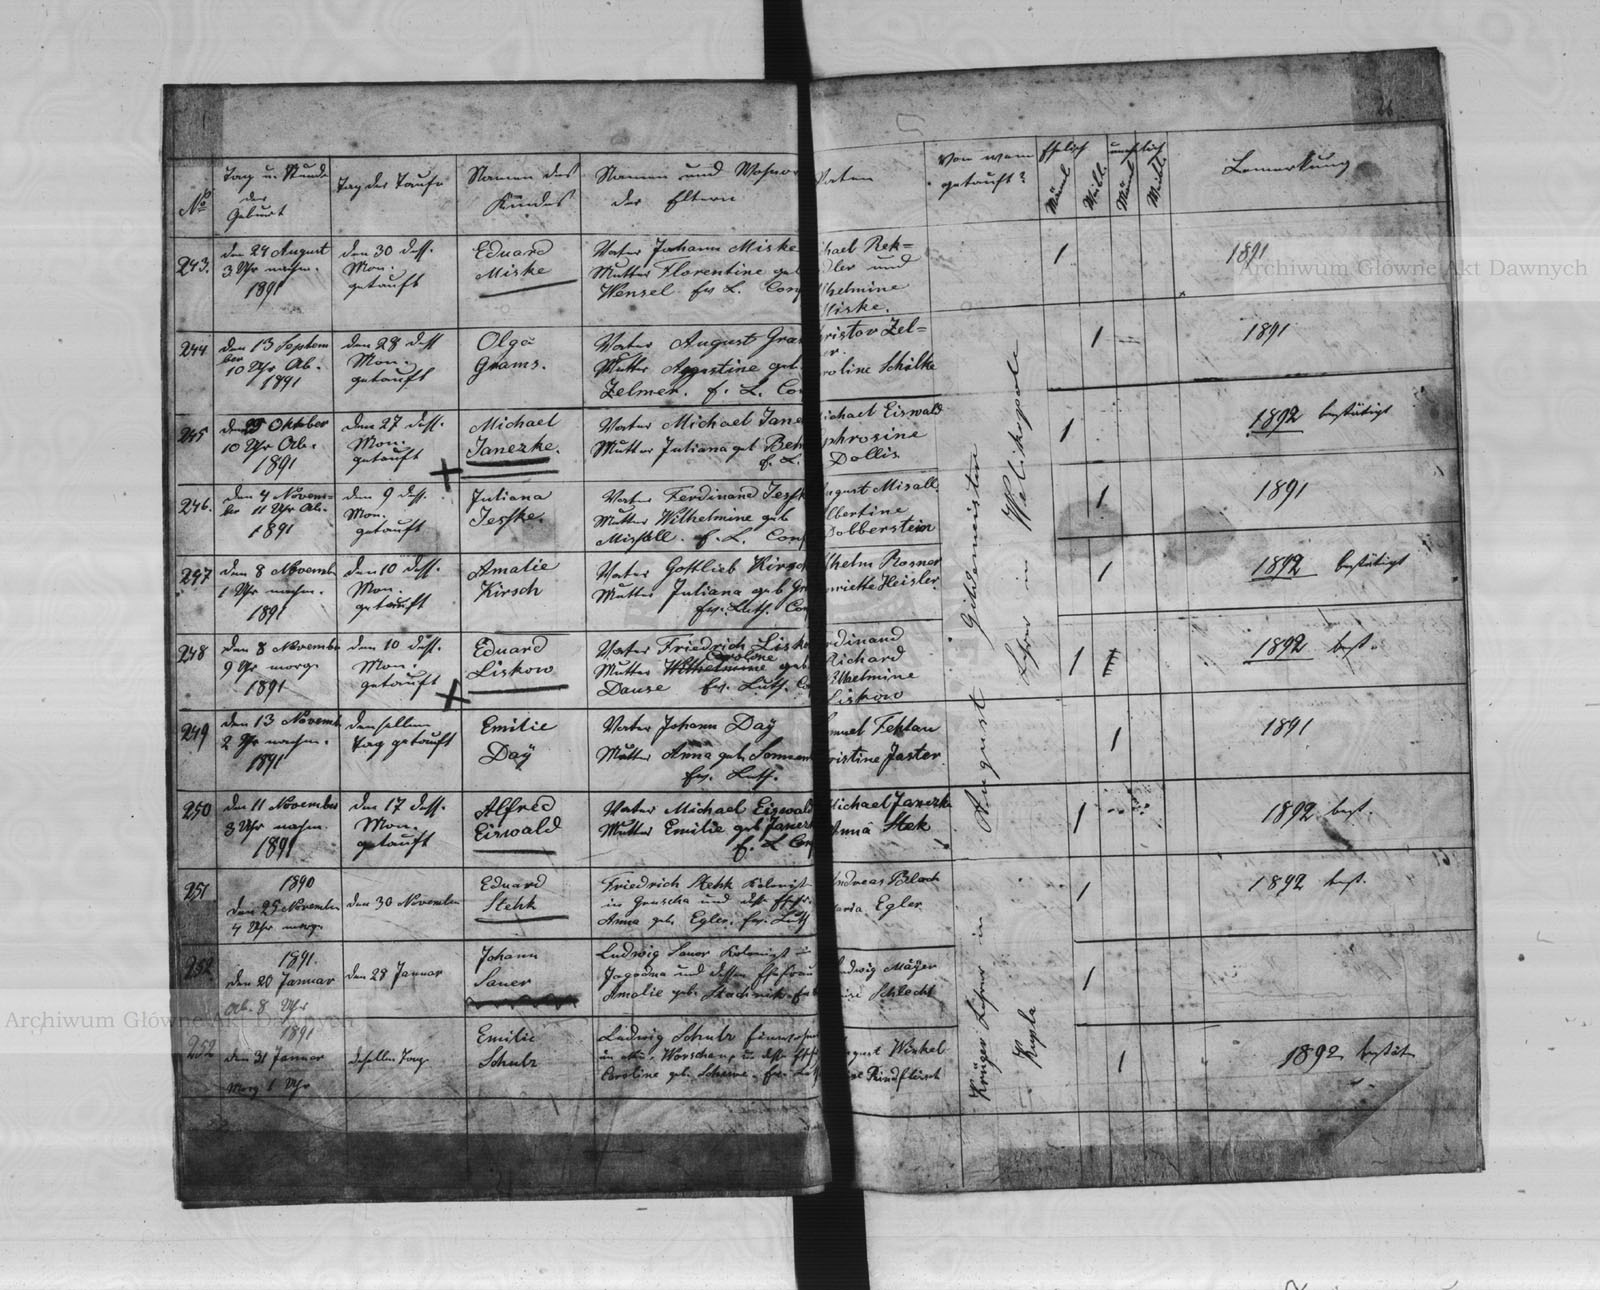 26
No
Tag u. Stunde
der
Geburt
Tag der Taufe
Namen des
Kindes
Namen und Wohnor
der Eltern
Paten
Von wem
getauft?
Ehelich
Mänl.
Weibl.
unehelich
Mänl.
Weibl.
Bemerkung
243.
den 24 August
3 Uhr nachm.
1891
den 30 dess.
Mon.
getauft
Eduard
Miske
Vater Johann Miske
Mutter Florentine geb
Wensel. ev L. Conf
chael Rek=
dler und
helmine
Miske.
1
1891
244
den 13 Septem
ber
10 Uhr Ab.
1891
den 28 dess
Mon.
getauft
Olga
Grams.
Vater August Gra
Mutter Agustine geb
Zelmer. e. L. Co
hristov Zel=
er.
roline Schülke
1
1891
245
den 25 Oktober
10 Uhr Ab.
1891
den 27 dess.
Mon.
getauft
Michael
Janezke.
Vater Michael Jane
Mutter Juliana geb Beh
e. L.
ichael Eiswald
phrosine
Dollis
1
1892 bestätigt
246.
den 4 Novem=
ber 11 Uhr Ab.
1891
den 9 dess.
Mon.
getauft
Juliana
Jeshke.
Vater Ferdinand Jeshk
Mutter Wilhelmine geb
Misall. e. L. Conf
ugust Misall.
lbertine
Dobberstein
1
1891
247
den 8 Novemb
1 Uhr nachm.
1891
den 10 dess.
Mon.
getauft
Amalie
Kirsch
Vater Gottlieb Kirsch
Mutter Juliana geb Gr
ev. Luth. Con
lhelm Rosner
nriette Heisler.
1
1892 bestätigt
248
den 8 November
9 Uhr morg.
1891
den 10 dess.
Mon.
getauft
Eduard
Liskow
Vater Friedrich Lisko
Caroline
Mutter Wilhelmine geb
Dause ev. Luth. Co
erdinand
Richard
Wilhelmine
Liskow
1
1892 best.
249
den 13 Novemb.
2 Uhr nachm.
1891
denselben
Tag getauft
Emilie
Day
Vater Johann Day
Mutter Anna geb Sommer
ev. Luth.
muel Fehlau
ristine Jaster.
1
1891
250
den 11 November
3 Uhr nachm.
1891
den 17 dess.
Mon.
getauft
Alfred
Eiswald
Vater Michael Eiswald
Mutter Emilie geb Janez
e. L Con
Michael Janezke
Anna Stek
1
1892 best.
August Gildemeister
Lehrer in Welikepole
251
1890
den 25 November
4 Uhr morg.
den 30 November
Eduard
Stehk
Friedrich Stehk Kolonist
in Gruscha und dess Ehefr.
Anna geb. Egler. ev. Luth
Andreas Bloch
Maria Egler
1
1892 best.
252
1891.
den 20 Januar
Ab. 8 Uhr
den 28 Januar
Johann
Sauer
Ludwig Sauer Kolonist in
Jagodna und dessen Ehefrau
Amalie geb. Stachnik. ev
Ludwig Mäyer
uise Schlecht
1
252
1891
den 31 Januar
Morg 1 Uhr
deselben Tag.
Emilie
Schulz
Ludwig Schulz
in
Caroline geb. Scherve. ev. Lut
ugust Winkel
ise Rindfleisch
1
1892 bestät
Krüger Lehrer in
Kupla
Archiwum Główne Akt Dawnych
Archiwum Główne Akt Dawnych